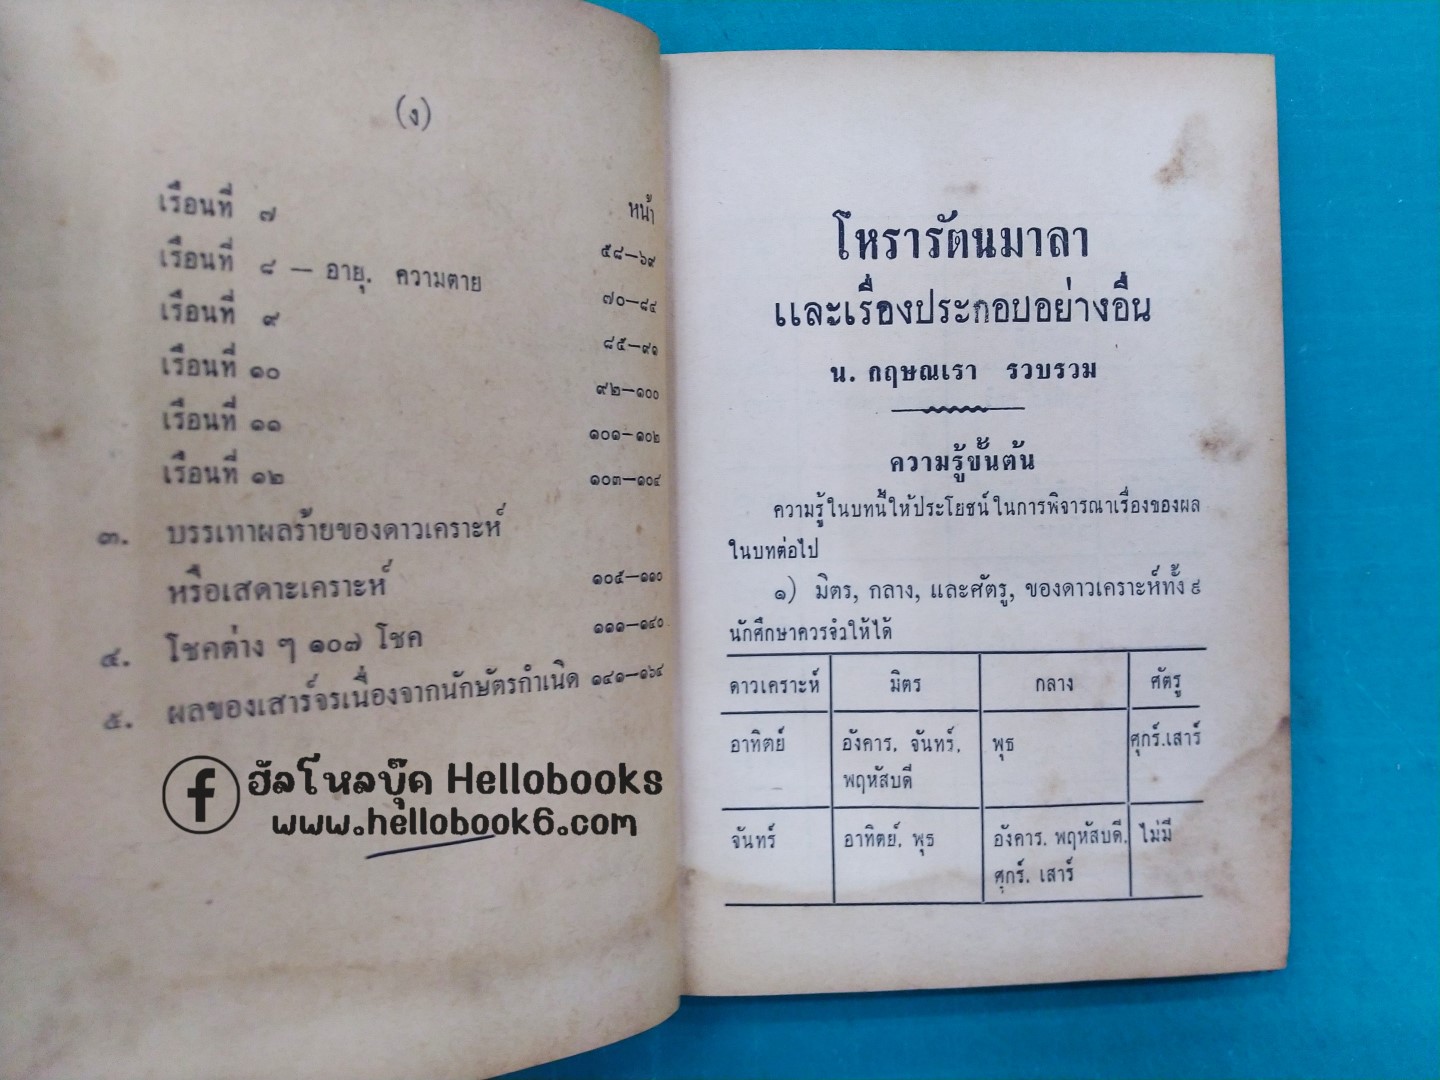 (ง)
หน้า
เรือนที่ ๗ ๕๘—๖๙
เรือนที่ ๘ — อายุ. ความตาย ๗๐—๘๔
เรือนที่ ๙ ๘๕—๙๑
เรือนที่ ๑๐ ๙๒—๑๐๐
เรือนที่ ๑๑ ๑๐๑—๑๐๒
เรือนที่ ๑๒ ๑๐๓—๑๐๔
๓. บรรเทาผลร้ายของดาวเคราะห์
หรือเสดาะเคราะห์ ๑๐๕—๑๑๐
๔. โชคต่าง ๆ ๑๐๗ โชค ๑๑๑—๑๔๐
๕. ผลของเสาร์จรเนื่องจากนักษัตรกำเนิด ๑๔๑—๑๖๔
ฮัลโหลบุ๊ค Hellobooks
www.hellobook6.com
โหรารัตนมาลา
และเรื่องประกอบอย่างอื่น
น. กฤษณเรา รวบรวม
ความรู้ขั้นต้น
ความรู้ในบทนี้ให้ประโยชน์ในการพิจารณาเรื่องของผล
ในบทต่อไป
๑) มิตร, กลาง, และศัตรู, ของดาวเคราะห์ทั้ง ๙
นักศึกษาควรจำให้ได้
ดาวเคราะห์ มิตร กลาง ศัตรู
อาทิตย์ อังคาร, จันทร์, พุธ ศุกร์.เสาร์
พฤหัสบดี
จันทร์ อาทิตย์, พุธ อังคาร, พฤหัสบดี, ไม่มี
ศุกร์, เสาร์